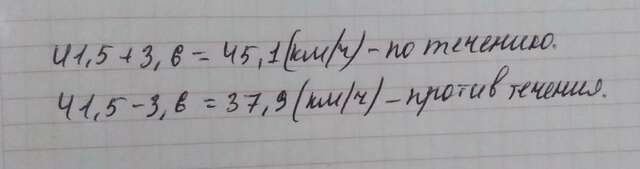 41,5 + 3,6 = 45,1 (км/ч) – по течению.
41,5 – 3,6 = 37,9 (км/ч) – против течения.